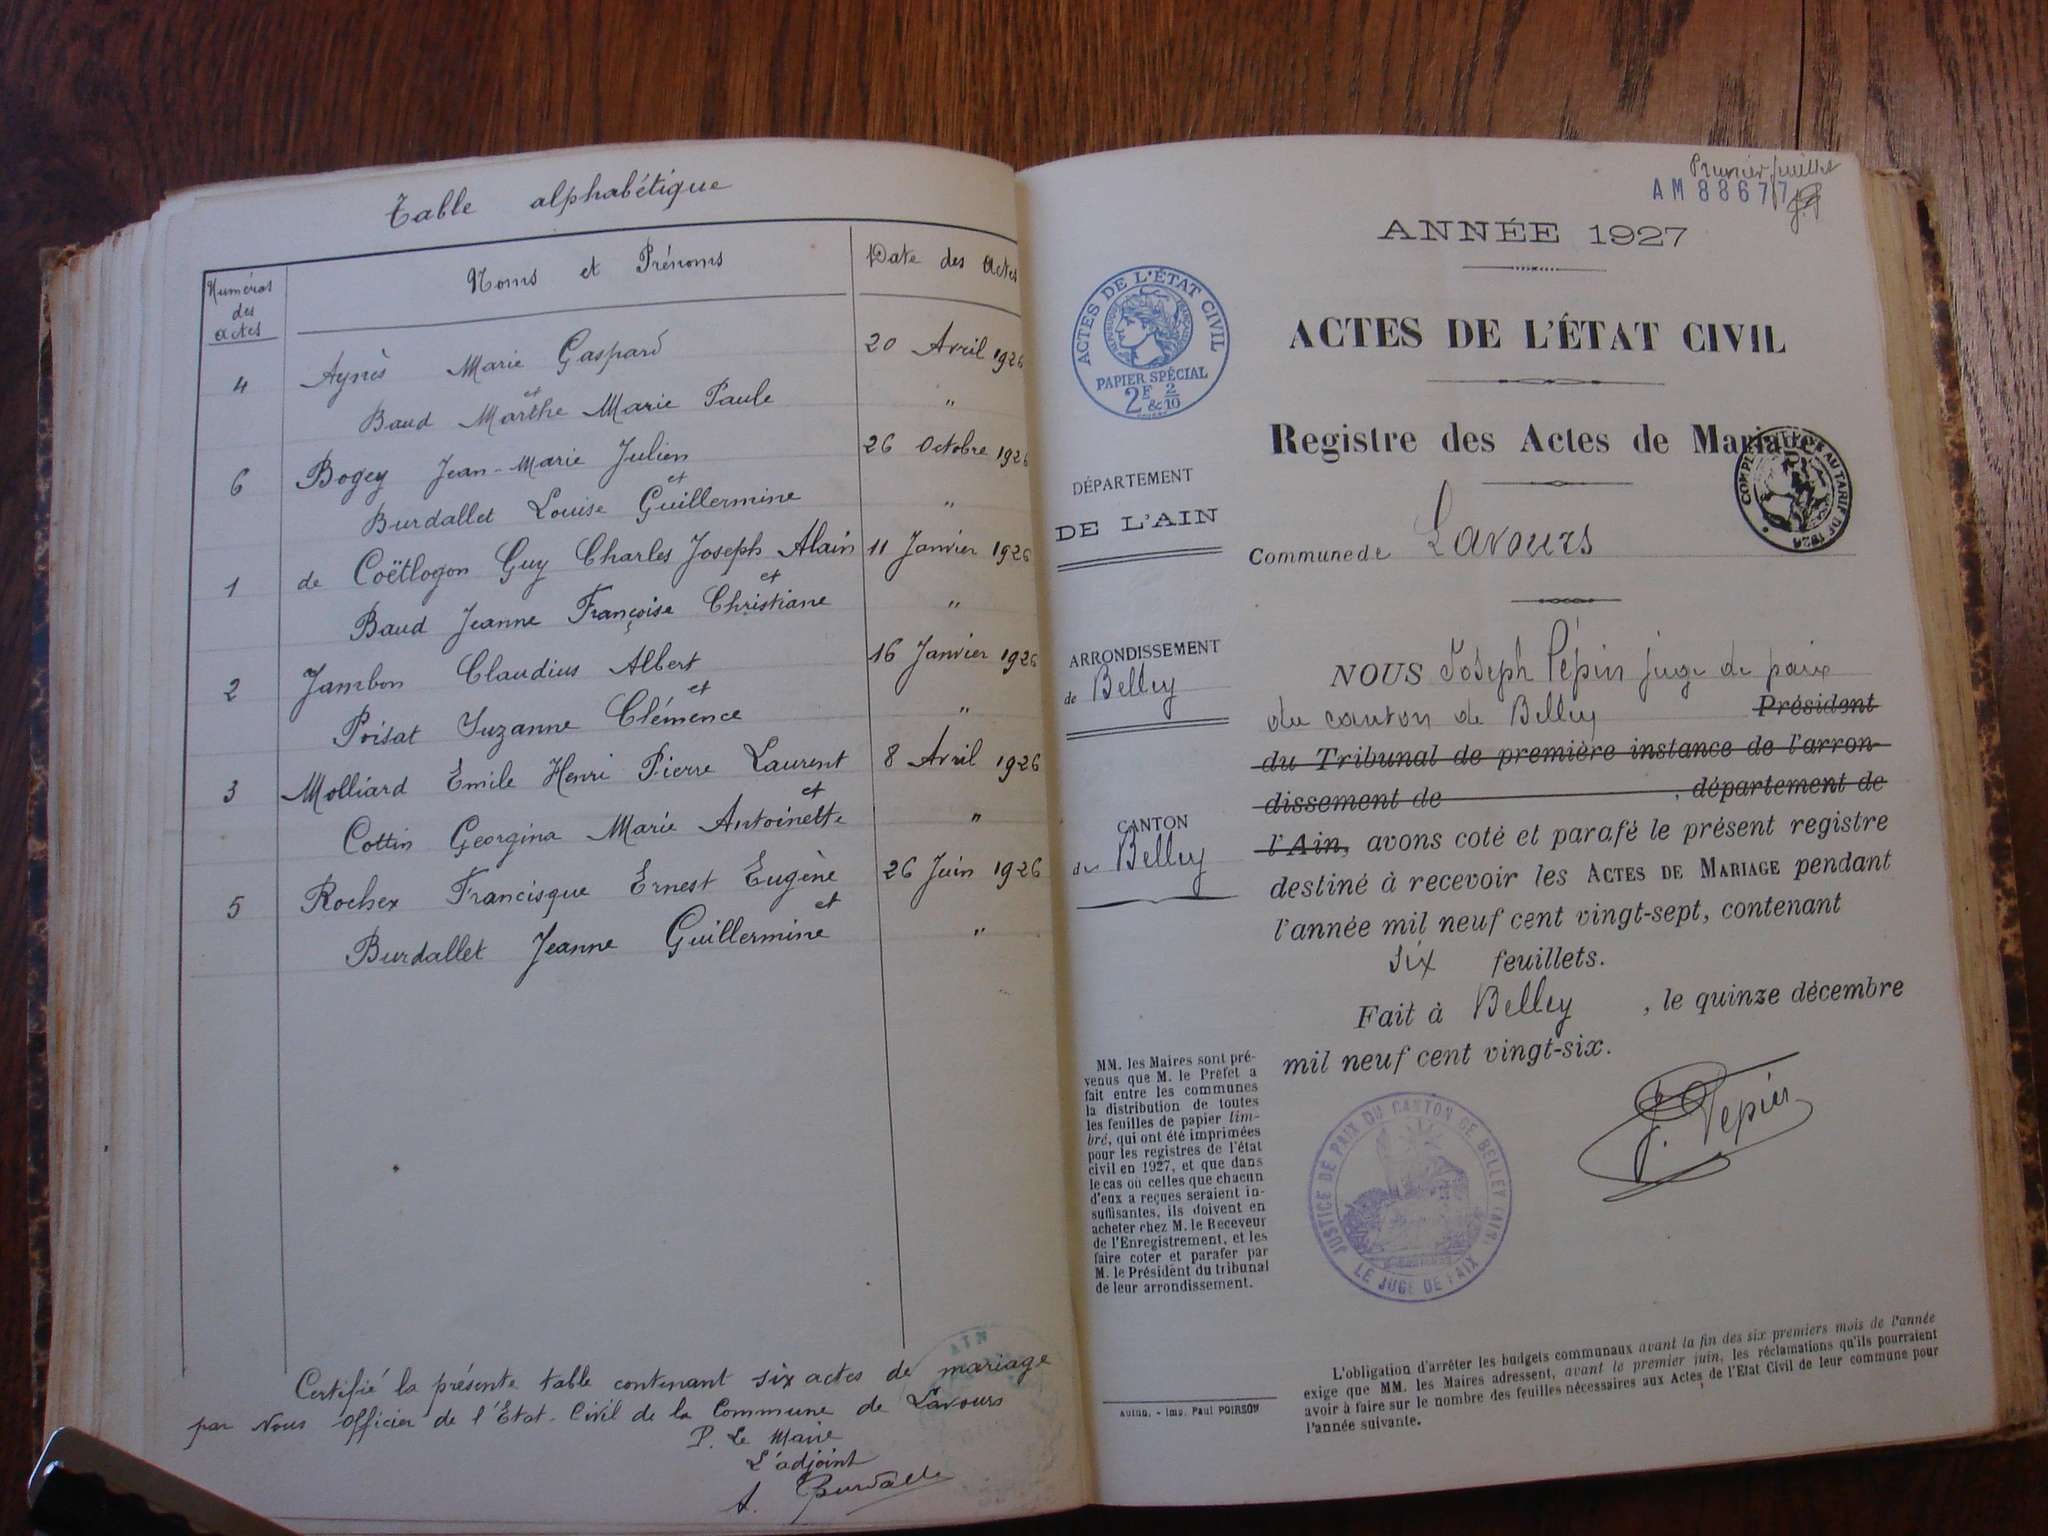 Table alphabétique
Numéros des actes
Noms et Prénoms
Date des Actes
4 Aynès Marie Gaspard 20 Avril 1926
et
Baud Marthe Marie Paule "
6 Bogey Jean-Marie Julien 26 Octobre 1926
et
Burdallet Louise Guillermine "
1 de Coëtlogon Guy Charles Joseph Alain 11 Janvier 1926
et
Baud Jeanne Françoise Christiane "
2 Jambon Claudius Albert 16 Janvier 1926
et
Poisat Suzanne Clémence "
3 Molliard Emile Henri Pierre Laurent 8 Avril 1926
et
Cottin Georgina Marie Antoinette "
5 Rochex Francisque Ernest Eugène 26 Juin 1926
et
Burdallet Jeanne Guillermine "
Certifié la présente table contenant six actes de mariage
par Nous Officier de l'Etat-Civil de la Commune de Lavours
P. Le Maire
L'adjoint
AIN
Premier feuillet
AM 88677
ANNÉE 1927
ACTES DE L'ÉTAT CIVIL
PAPIER SPÉCIAL
2F & 2/10
ACTES DE L'ÉTAT CIVIL
Registre des Actes de Mariage
COMPLÉMENT AU TARIF DE 1926
DÉPARTEMENT
DE L'AIN
Commune de Lavours
ARRONDISSEMENT
de Belley
CANTON
de Belley
NOUS Joseph Pépin juge de paix
du canton de Belley Président
du Tribunal de première instance de l'arron-
dissement de , département de
l'Ain, avons coté et parafé le présent registre
destiné à recevoir les ACTES DE MARIAGE pendant
l'année mil neuf cent vingt-sept, contenant
six feuillets.
Fait à Belley , le quinze décembre
mil neuf cent vingt-six.
J. Pépin
JUSTICE DE PAIX DU CANTON DE BELLEY (AIN)
LE JUGE DE PAIX
MM. les Maires sont pré-
venus que M. le Préfet a
fait entre les communes
la distribution de toutes
les feuilles de papier tim-
bré, qui ont été imprimées
pour les registres de l'état
civil en 1927, et que dans
le cas où celles que chacun
d'eux a reçues seraient in-
suffisantes, ils doivent en
acheter chez M. le Receveur
de l'Enregistrement, et les
faire coter et parafer par
M. le Président du tribunal
de leur arrondissement.
Autun. - Imp. Paul POIRSON
L'obligation d'arrêter les budgets communaux avant la fin des six premiers mois de l'année
exige que MM. les Maires adressent, avant le premier juin, les réclamations qu'ils pourraient
avoir à faire sur le nombre des feuilles nécessaires aux Actes de l'Etat Civil de leur commune pour
l'année suivante.